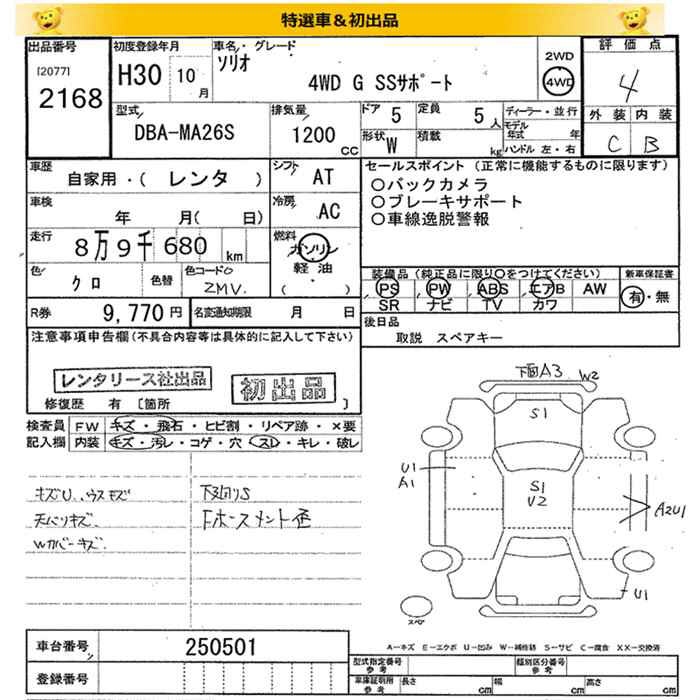 特選車&初出品
出品番号
[2077]
2168
初度登録年月
H30 10月
車名・グレード
ソリオ
4WD G SSサポート
2WD
4WD
評価点
4
外装 内装
C B
型式
DBA-MA26S
排気量
1200 CC
ドア 5
定員 5人
形状 W
積載 kg
ディーラー・並行
モデル年式 年
ハンドル 左・右
車歴
自家用・( レンタ )
シフト AT
車検
年 月( 日)
冷房 AC
走行
8万9千680 km
燃料
ガソリン
軽油
( )
色 クロ
色替
色コードNO
ZMV
セールスポイント (正常に機能するものに限ります)
○バックカメラ
○ブレーキサポート
○車線逸脱警報
装備品 (純正品に限り○をつけてください)
PS PW ABS エアB AW
SR ナビ TV カワ
新車保証書
有・無
R券 9,770円
名変通知期限 月 日
後日品
取説 スペアキー
注意事項申告欄(不具合内容等は具体的に記入して下さい)
レンタリース社出品
初出品
修復歴 有 [箇所 ]
検査員記入欄
FW キズ・飛石・ヒビ割・リペア跡・×要
内装 キズ・汚レ・コゲ・穴・スレ・キレ・破レ
キズU、ウスキズ
天バリキズ
Wカバーキズ
下回りS
下面A3
W2
S1
U1
A1
S1
U2
A2U1
U1
スペア
車台番号 250501
登録番号
A―キズ E―エクボ U―凹み W―補修跡 S―サビ C―腐食 XX―交換済
型式指定番号 参考
類別区分番号 参考
車庫証明用 参考
長さ cm
幅 cm
高さ cm